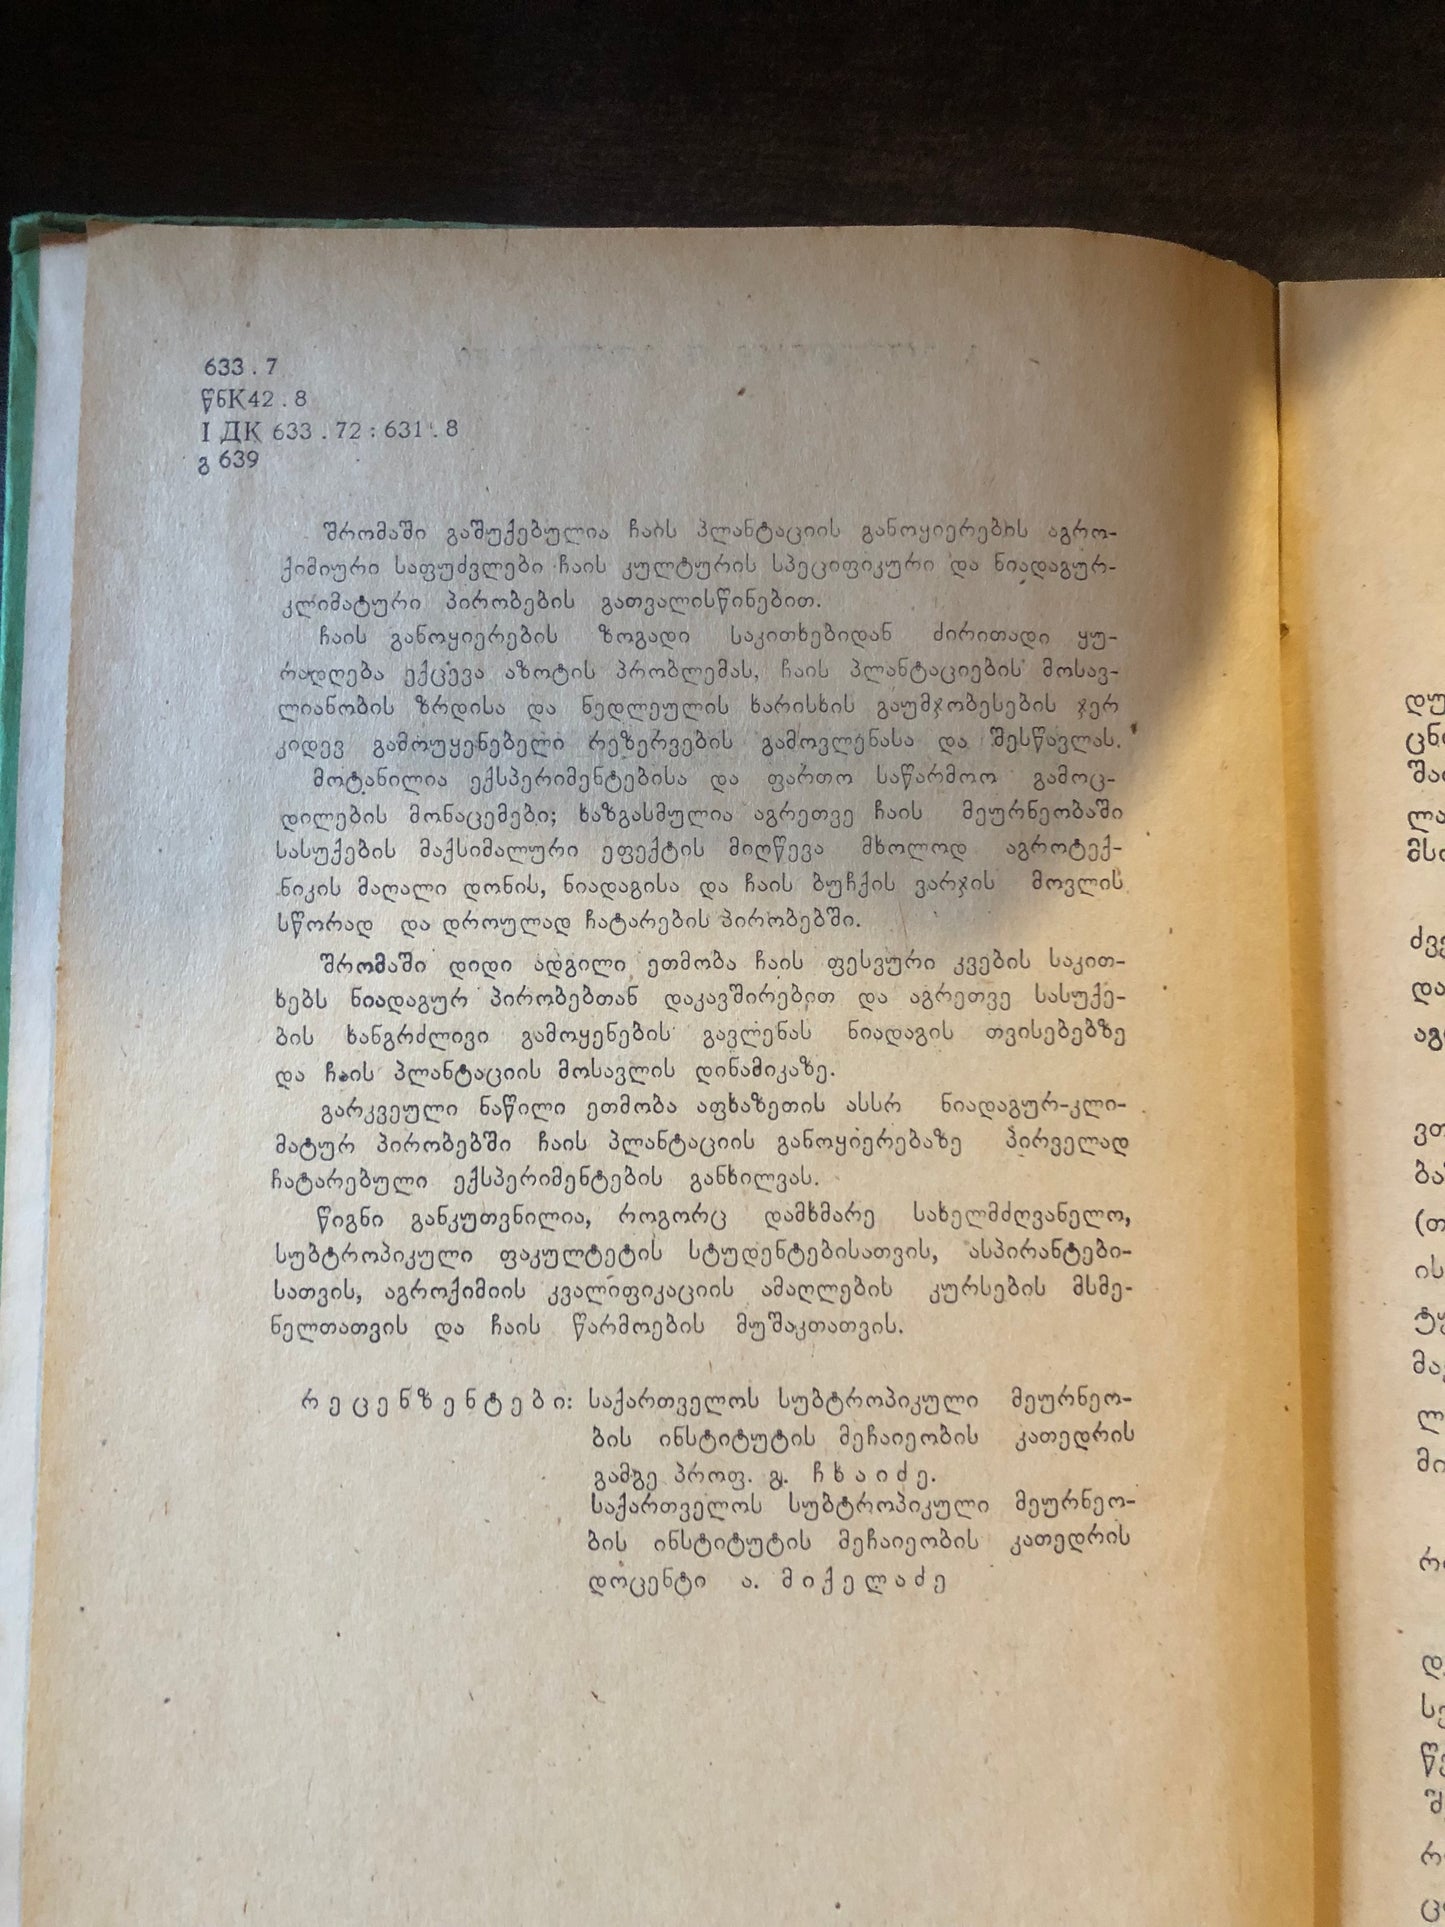 633.7
წნК42.8
I ДК 633.72:631.8
გ 639
შრომაში გაშუქებულია ჩაის პლანტაციის განოყიერების აგრო-
ქიმიური საფუძვლები ჩაის კულტურის სპეციფიკური და ნიადაგურ-
კლიმატური პირობების გათვალისწინებით.
ჩაის განოყიერების ზოგადი საკითხებიდან ძირითადი ყუ-
რადღება ექცევა აზოტის პრობლემას, ჩაის პლანტაციების მოსავ-
ლიანობის ზრდისა და ნედლეულის ხარისხის გაუმჯობესების ჯერ
კიდევ გამოუყენებელი რეზერვების გამოვლენასა და შესწავლას.
მოტანილია ექსპერიმენტებისა და ფართო საწარმოო გამოც-
დილების მონაცემები; ხაზგასმულია აგრეთვე ჩაის მეურნეობაში
სასუქების მაქსიმალური ეფექტის მიღწევა მხოლოდ აგროტექ-
ნიკის მაღალი დონის, ნიადაგისა და ჩაის ბუჩქის ვარჯის მოვლის
სწორად და დროულად ჩატარების პირობებში.
შრომაში დიდი ადგილი ეთმობა ჩაის ფესვური კვების საკით-
ხებს ნიადაგურ პირობებთან დაკავშირებით და აგრეთვე სასუქე-
ბის ხანგრძლივი გამოყენების გავლენას ნიადაგის თვისებებზე
და ჩაის პლანტაციის მოსავლის დინამიკაზე.
გარკვეული ნაწილი ეთმობა აფხაზეთის ასსრ ნიადაგურ-კლი-
მატურ პირობებში ჩაის პლანტაციის განოყიერებაზე პირველად
ჩატარებული ექსპერიმენტების განხილვას.
წიგნი განკუთვნილია, როგორც დამხმარე სახელმძღვანელო,
სუბტროპიკული ფაკულტეტის სტუდენტებისათვის, ასპირანტები-
სათვის, აგროქიმიის კვალიფიკაციის ამაღლების კურსების მსმე-
ნელთათვის და ჩაის წარმოების მუშაკთათვის.
რეცენზენტები: საქართველოს სუბტროპიკული მეურნეო-
ბის ინსტიტუტის მეჩაიეობის კათედრის
გამგე პროფ. გ. ჩხაიძე.
საქართველოს სუბტროპიკული მეურნეო-
ბის ინსტიტუტის მეჩაიეობის კათედრის
დოცენტი ა. მიქელაძე